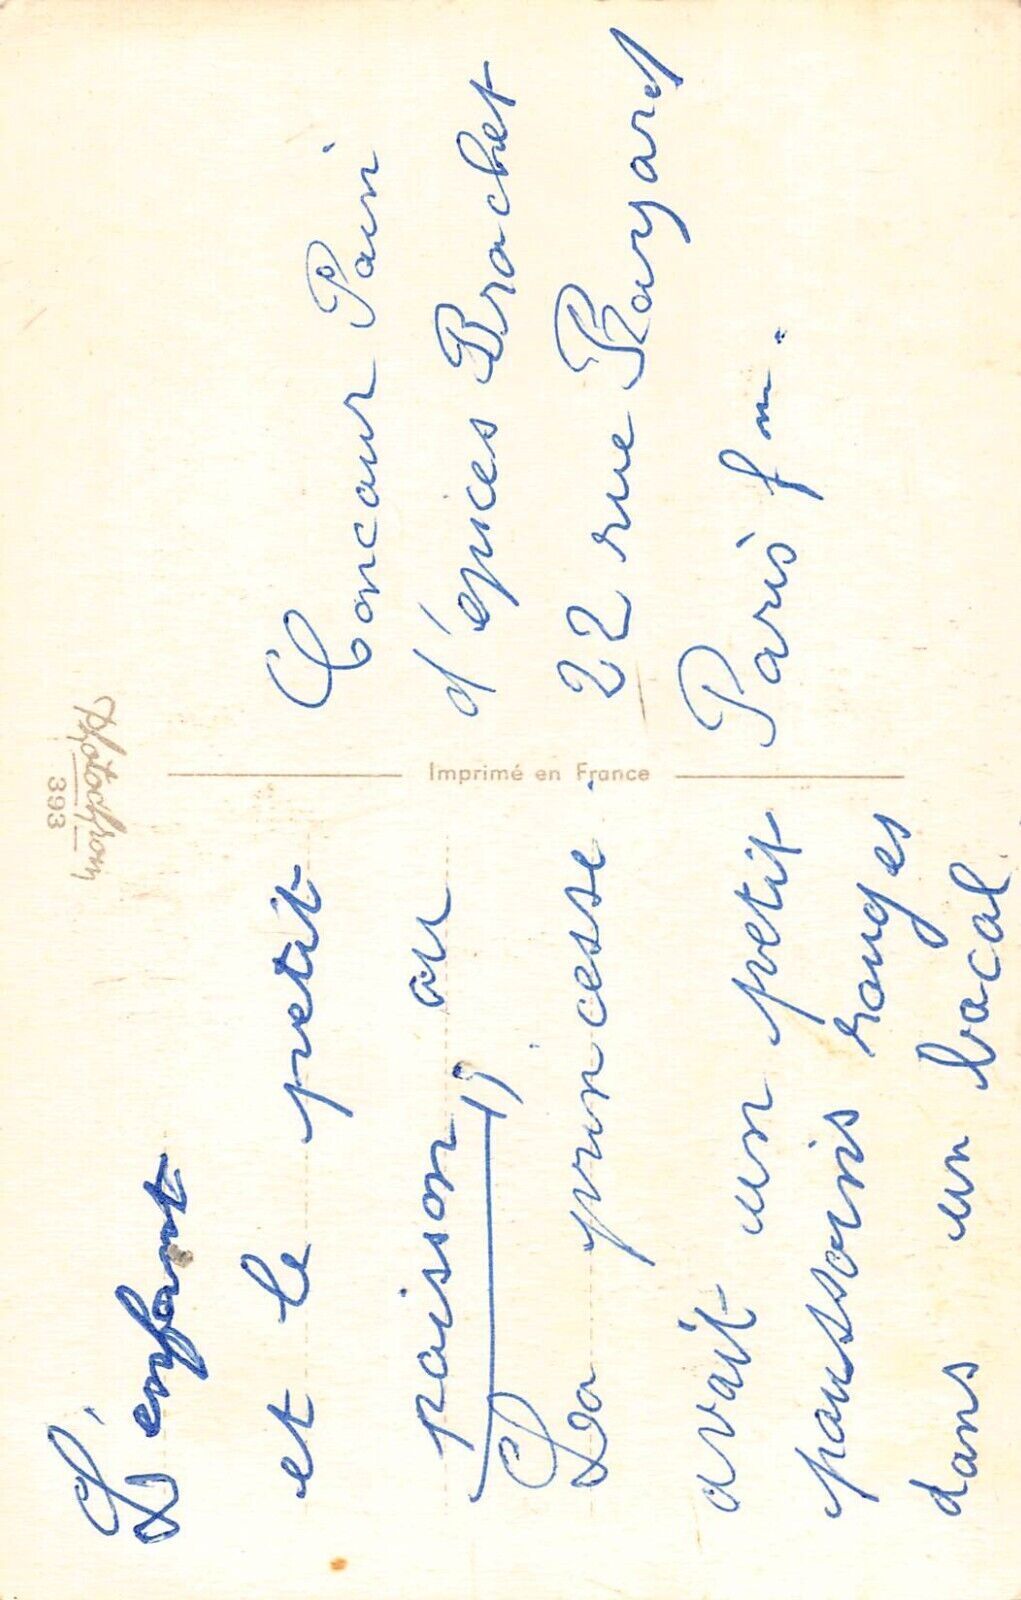 L'enfant
et le petit
poisson, ou
La princesse
avait un petit
poissons rouges
dans un bocal
Photochrom
393
Imprimé en France
Concour Pain
d'épices Brochet
22 rue Bayard
Paris f m.